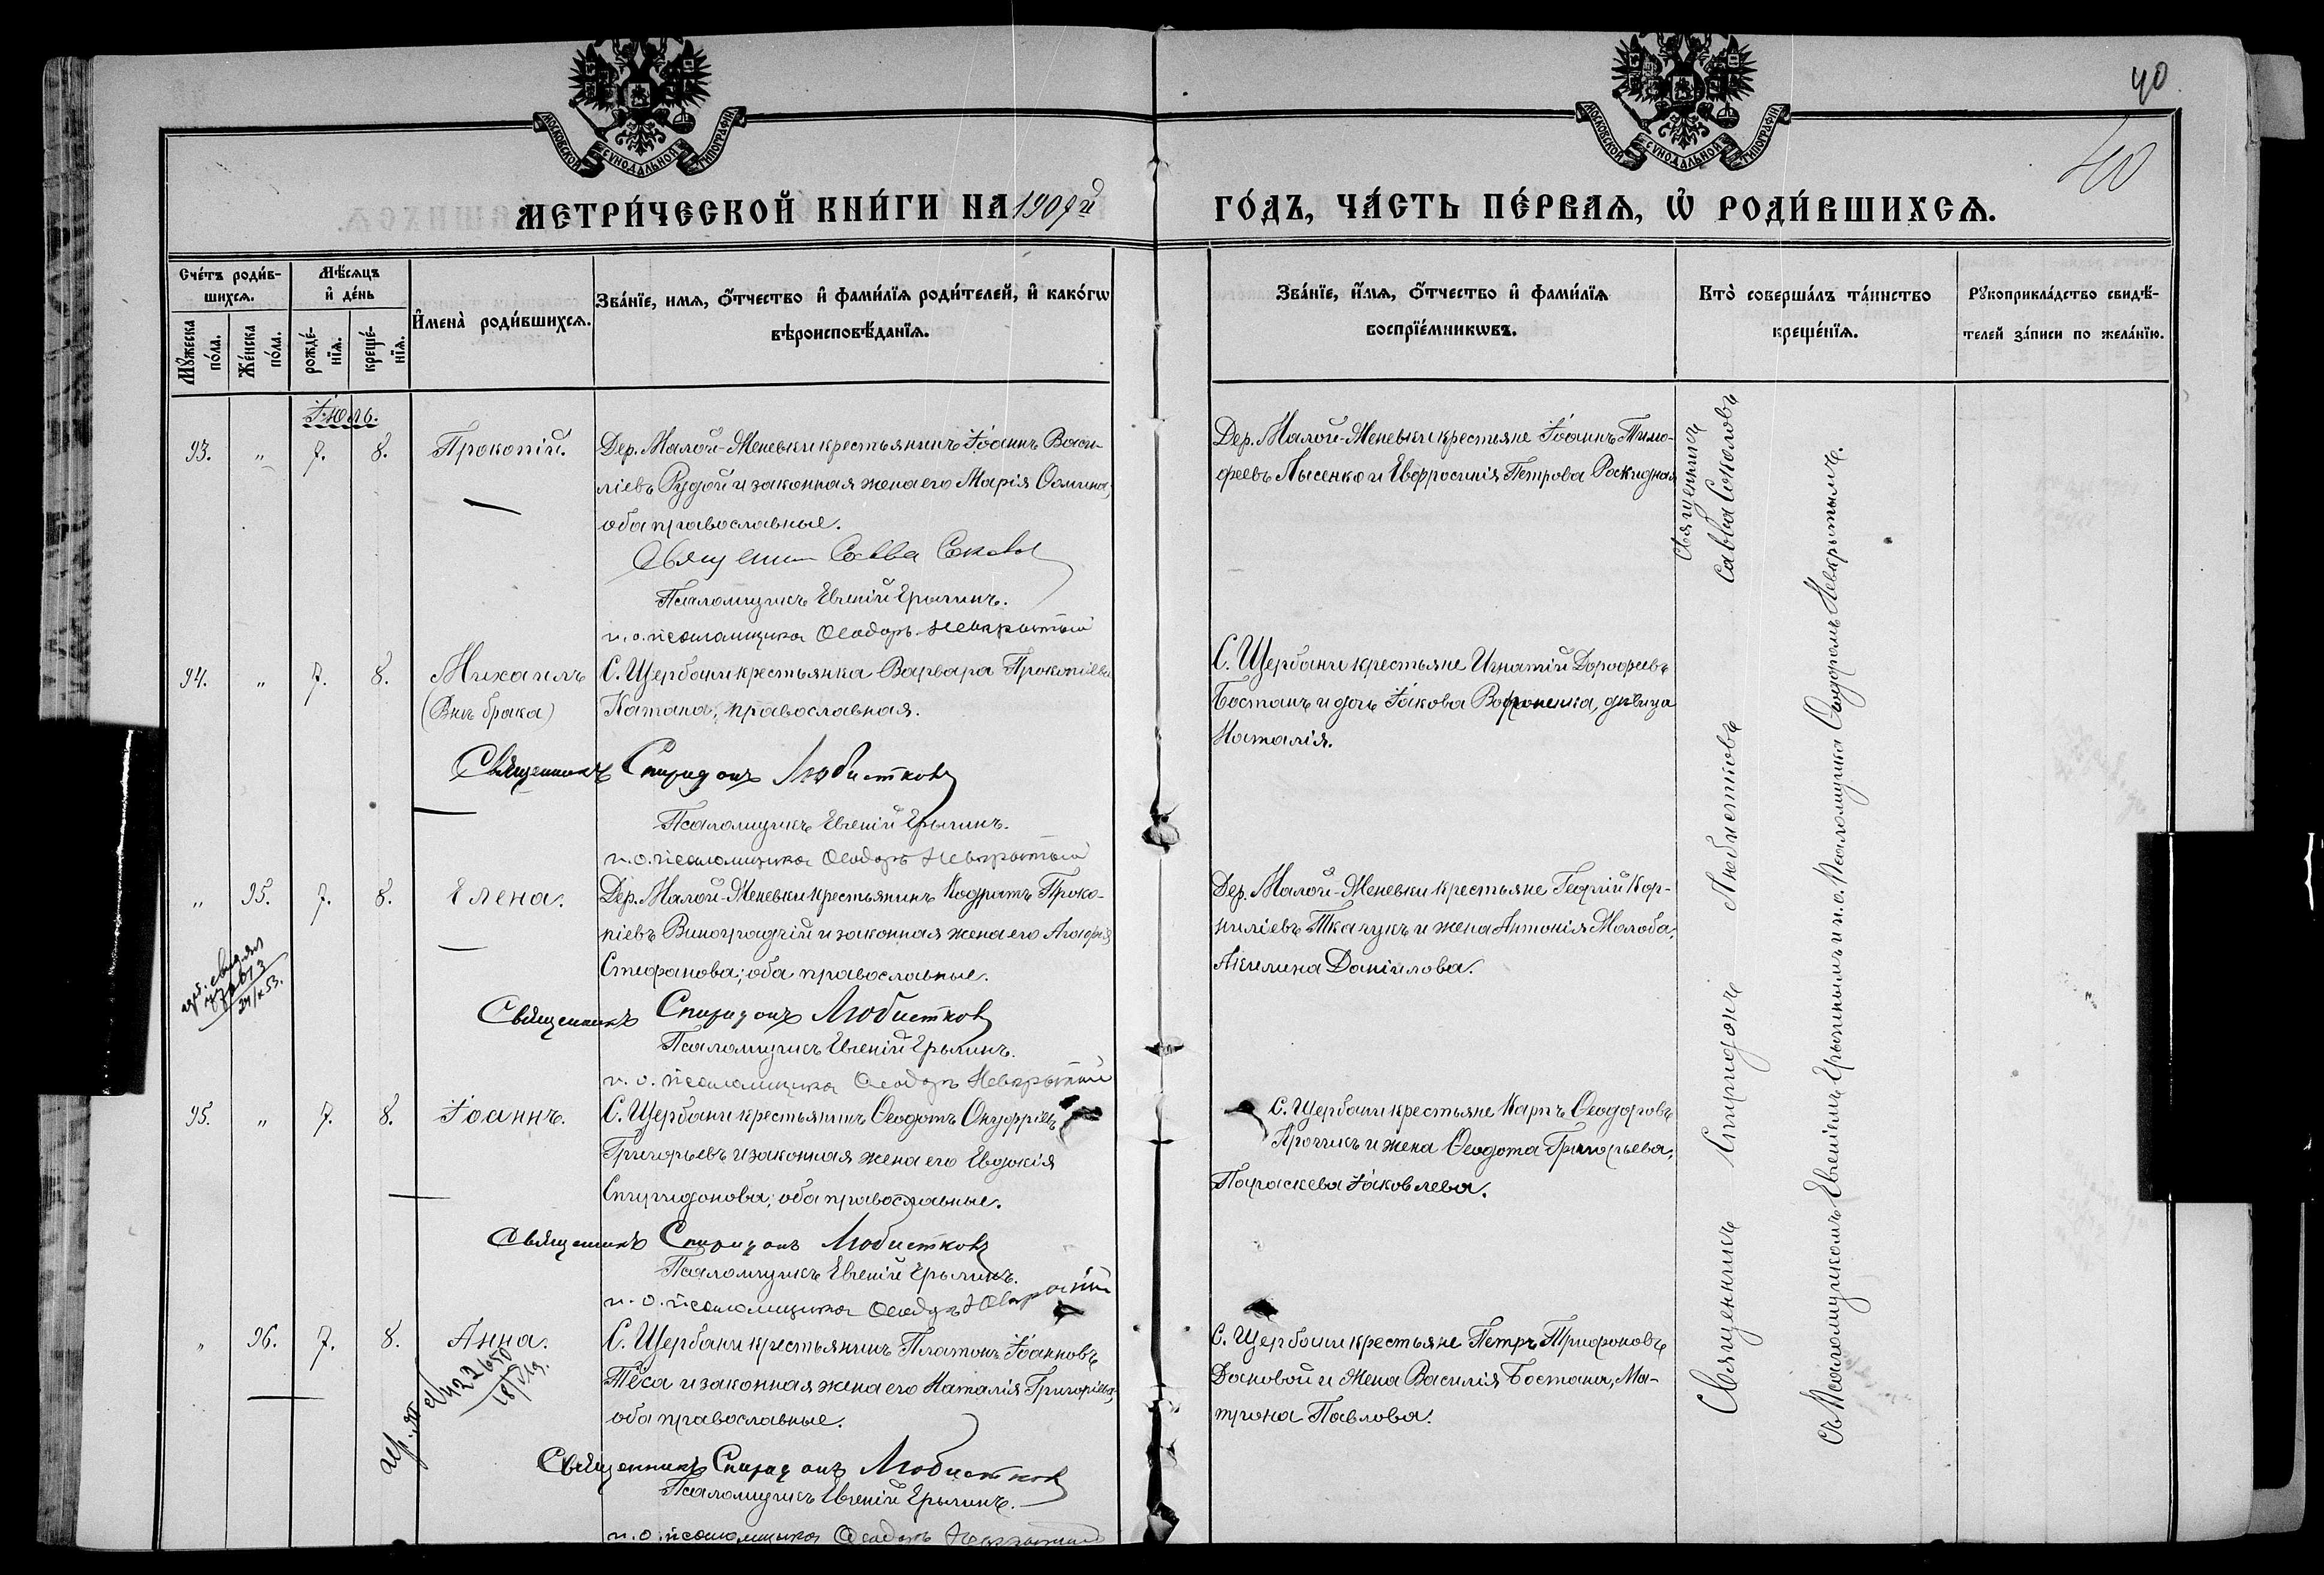 40
40
МОСКОВСКОЙ СѴНОДАЛЬНОЙ ТИПОГРАФІИ
МОСКОВСКОЙ СѴНОДАЛЬНОЙ ТИПОГРАФІИ
МЕТРИ́ЧЕСКОЙ КНИ́ГИ НА 1907й ГО́ДЪ, ЧА́СТЬ ПЕ́РВАѦ, Ѡ҆ РОДИ́ВШИХСѦ.
Сче́тъ роди́в-
шихсѧ.
Мꙋ́жеска по́ла.
Же́нска по́ла.
Мѣ́сѧцъ
и҆ де́нь
рожде́-
нїѧ.
креще́-
нїѧ.
И҆мена̀ роди́вшихсѧ.
Зва́нїе, имѧ, ѻ҆́тчество и҆ фами́лїѧ роди́телей, и҆ како́гѡ
вѣроисповѣ́данїѧ.
Зва́нїе, и҆́мѧ, ѻ҆́тчество и҆ фами́лїѧ
воспрїе́мникѡвъ.
Кто̀ соверша́лъ та́инство
креще́нїѧ.
Рꙋкоприкла́дство свидѣ́-
телей за́писи по жела́нїю.
Іюль.
93. " 7. 8. Прокопій.
Дер. Малой-Меневки крестьянинъ Іоаннъ Васи-
ліевъ Рудой и законная жена его Марія
оба православные.
Савва
Псаломщикъ Евгеній
и. о. псаломщика Ѳеодоръ Невкрытый
Дер. Малой-Меневки крестьяне Іоаннъ Тимо-
феевъ Лысенко и Евфросинія Петрова
94. " 7. 8. Михаилъ
(Внѣ брака)
С. Щербани крестьянка Варвара Прокопіева
Катана, православная.
Священникъ Спиридонъ Любистковъ
Псаломщикъ Евгеній
и. о. псаломщика Ѳеодоръ Невкрытый
С. Щербани крестьяне Игнатій Дорофеевъ
Бостанъ и дочь Іакова дѣвица
Наталія.
" 95. 7. 8. Елена.
Дер. Малой-Меневки крестьянинъ Кодратъ Проко-
піевъ Виноградчій и законная жена его Агафія
Стефанова; оба православные.
Священникъ Спиридонъ Любистковъ
Псаломщикъ Евгеній
и. о. псаломщика Ѳеодоръ Невкрытый
Дер. Малой-Меневки крестьяне Георгій Кор-
ниліевъ Ткачукъ и жена Антонія Малоба,
Акилина Даніилова.
24/X 53.
95. " 7. 8. Іоаннъ.
С. Щербани крестьянинъ Ѳеодотъ Онуфріевъ
Григорьевъ и законная жена его Евдокія
Спиридонова; оба православные.
Священникъ Спиридонъ Любистковъ
Псаломщикъ Евгеній
и. о. псаломщика Ѳеодоръ Невкрытый
С. Щербани крестьяне Карпъ Ѳеодоровъ
и жена Ѳеодота Григорьева,
Параскева Іаковлева.
" 96. 7. 8. Анна.
С. Щербани крестьянинъ Платонъ Іоанновъ
Тёса и законная жена его Наталія Григоріева,
оба православные.
Священникъ Спиридонъ Любистковъ
Псаломщикъ Евгеній
и. о. псаломщика Ѳеодоръ Невкрытый
С. Щербани крестьяне Петръ Трифоновъ
Дановой и жена Василія Бостана, Ма-
трона Павлова.
Священникъ
Савва Соколовъ
Священникъ Спиридонъ Любистковъ
Съ Псаломщикомъ Евгеніемъ и и. о. Псаломщика Ѳеодоромъ Невкрытымъ.